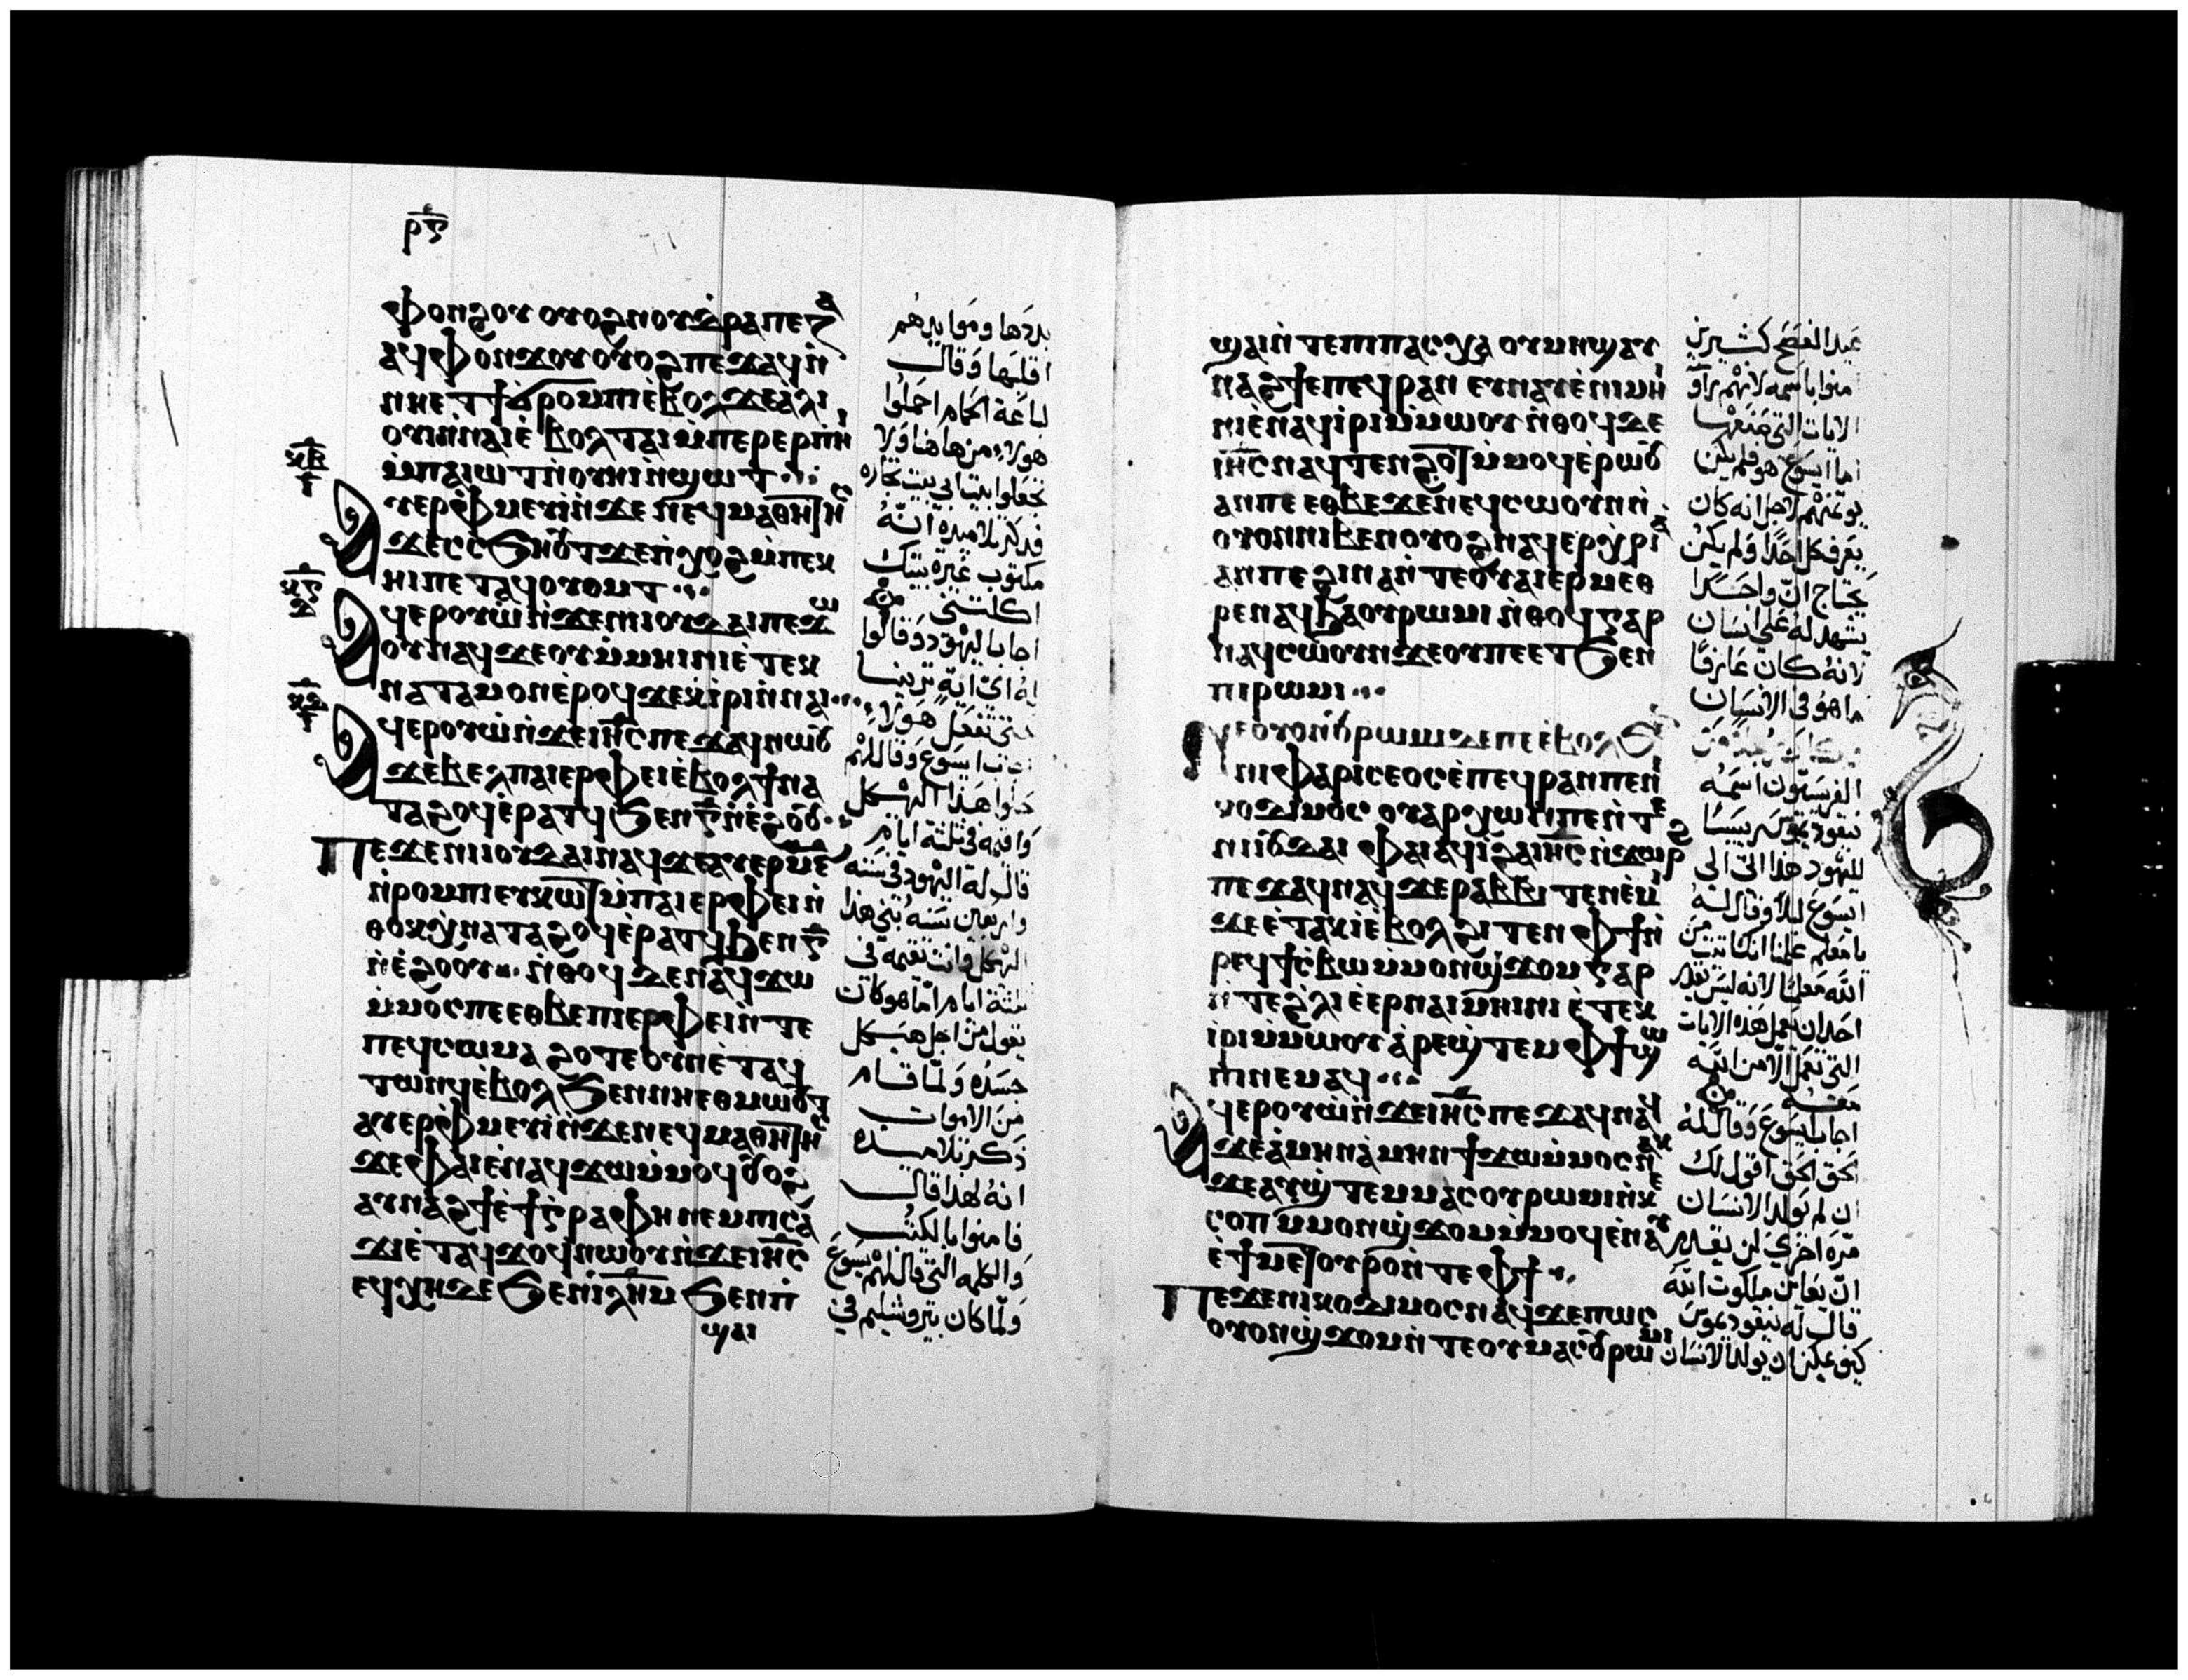 ⲣⲋ
ⲫⲟⲛϩⲟⲩ ⲟⲩⲟϩ ⲛⲟⲩⲧⲣⲁⲡⲉⲍⲁ
ⲁϥⲫⲟⲛϫⲟⲩ ⲟⲩⲟϩ ⲡⲉϫⲁϥ ⲛ̀
ⲛⲏⲉⲧϯ ϭⲣⲟⲙⲡⲓ ⲉ̀ⲃⲟⲗ ϫⲉ ⲁ̀ⲗⲓ
ⲟⲩⲓ̀ ⲛ̀ⲛⲁⲓ ⲉ̀ⲃⲟⲗ ⲧⲁⲓ ⲙ̀ⲡⲉⲣⲉⲣ ⲡⲏⲓ
ⲙ̀ⲡⲁⲓⲱⲧ ⲛ̀ⲟⲩⲏⲓ ⲛ̀ϣⲱⲧ
ⲁⲩⲉⲣⲫⲙⲉⲩⲓ̀ ⲛ̀ϫⲉ ⲛⲉϥⲙⲁⲑⲏⲧⲏⲥ
ϫⲉ ⲥⲥϧⲏⲟⲩⲧ ϫⲉ ⲛ̀ⲭⲟϩ ⲙ̀ⲡⲉⲕ
ⲏⲓ ⲡⲉⲧⲁϥⲟⲩⲟⲙⲧ
ⲁϥⲉⲣⲟⲩⲱ̀ ⲛ̀ϫⲉ ⲛⲓⲓⲟⲩⲇⲁⲓ ⲡⲉϫⲱ
ⲟⲩ ⲛⲁϥ ϫⲉ ⲟⲩ ⲙ̀ⲙⲏⲓⲛⲓ ⲉ̀ⲧⲉⲕ
ⲛⲁⲧⲁⲙⲟⲛ ⲉ̀ⲣⲟϥ ϫⲉ ⲕⲓ̀ⲣⲓ ⲛ̀ⲛⲁⲓ
ⲁϥⲉⲣⲟⲩⲱ̀ ⲛ̀ϫⲉ ⲓⲏⲥ ⲡⲉϫⲁϥ ⲛⲱⲟⲩ
ϫⲉ ⲃⲉⲗ ⲡⲁⲓⲉⲣⲫⲉⲓ ⲉ̀ⲃⲟⲗ ϯⲛⲁ
ⲧⲁϩⲟϥ ⲉ̀ⲣⲁⲧϥ ϧⲉⲛ ⲅ̅ ⲛ̀ⲉ̀ϩⲟⲟⲩ
ⲡⲉϫⲉ ⲛⲓⲓⲟⲩⲇⲁⲓ ⲛⲁϥ ϫⲉ ⲁⲩⲉⲣ ⲙ̅ⲋ̅
ⲛ̀ⲣⲟⲙⲡⲓ ⲉⲩⲕⲱⲧ ⲙ̀ⲡⲁⲓⲉⲣⲫⲉⲓ ⲛ̀
ⲑⲟⲕ ⲭⲛⲁⲧⲁϩⲟϥ ⲉ̀ⲣⲁⲧϥ ϧⲉⲛ ⲅ̅
ⲛ̀ⲉ̀ϩⲟⲟⲩ ⲛ̀ⲑⲟϥ ⲇⲉ ⲛⲁϥϫⲱ
ⲙ̀ⲙⲟⲥ ⲡⲉ ⲉⲑⲃⲉ ⲡⲓⲉⲣⲫⲉⲓ ⲛ̀ⲧⲉ
ⲡⲉϥⲥⲱⲙⲁ ϩⲟⲧⲉ ⲟⲩⲛ ⲉ̀ⲧⲁϥ
ⲧⲱⲛϥ ⲉ̀ⲃⲟⲗ ϧⲉⲛ ⲛⲏⲉⲑⲙⲱⲟⲩⲧ
ⲁⲩⲉⲣⲫⲙⲉⲩⲓ̀ ⲛ̀ϫⲉ ⲛⲉϥⲙⲁⲑⲏⲧⲏⲥ
ϫⲉ ⲫⲁⲓ ⲉ̀ⲛⲁϥϫⲱ ⲙ̀ⲙⲟϥ ⲟⲩⲟϩ
ⲁⲩⲛⲁϩϯ ⲉ̀ϯⲅⲣⲁⲫⲏ ⲛⲉⲙ ⲡⲓⲥⲁ
ϫⲓ ⲉ̀ⲧⲁϥϫⲟϥ ⲛⲱⲟⲩ ⲛ̀ϫⲉ ⲓⲏⲥ
ⲉϥⲭⲏ ⲇⲉ ϧⲉⲛ ⲓⲗⲏⲙ ϧⲉⲛ ⲡ
ϣⲁⲓ
بددها وموايدهم
اقلبها وقال
لباعة الحمام احملوا
هولاء من هاهنا ولا
تجعلوا بيت ابي بيت تجاره
فذكر تلاميده انه
مكتوب غيرة بيتك
اكلتني
اجابا اليهود وقالوا
له اي اية ترينا
حتى تفعل هولاء
اجاب ايسوع وقال لهم
حلوا هذا الهيكل
واقيمه في تلتة ايام
قال له اليهود في ستة
واربعين سنه بني هذا
الهيكل وانت تقيمه في
تلتة ايام اما هو كان
يقول من اجل هيكل
جسده ولما قام
من الاموات
ذكر تلاميده
انه لهذا قال
فامنوا بالكتب
والكلمه التي قالها لهم يسوع
ولما كان بيروشليم في
ϣⲁⲓ ⲛ̀ⲧⲉ ⲡⲓⲡⲁⲥⲭⲁ ⲟⲩⲙⲏϣ ⲁⲩ
ⲛⲁϩϯ ⲉ̀ⲡⲉϥⲣⲁⲛ ⲉⲩⲛⲁⲩ ⲉ̀ⲛⲓⲙⲏⲓ
ⲛⲓ ⲉ̀ⲛⲁϥⲓ̀ⲣⲓ ⲙ̀ⲙⲱⲟⲩ ⲛ̀ⲑⲟϥ ⲇⲉ
ⲓⲏⲥ ⲛⲁϥⲧⲉⲛϩⲟⲩⲧ ⲙ̀ⲙⲟϥ ⲉ̀ⲣⲱⲟⲩ
ⲁⲛ ⲡⲉ ⲉⲑⲃⲉ ϫⲉ ⲛⲉϥⲥⲱⲟⲩⲛ ⲛ̀
ⲟⲩⲟⲛ ⲛⲓⲃⲉⲛ ⲟⲩⲟϩ ⲛⲁϥⲉⲣⲭⲣⲓⲁ
ⲁⲛ ⲡⲉ ϩⲓⲛⲁ ⲛ̀ⲧⲉ ⲟⲩⲁⲓ ⲉⲣⲙⲉⲑ
ⲣⲉ ⲛⲁϥ ϧⲁ ⲟⲩⲣⲱⲙⲓ ⲛ̀ⲑⲟϥ ⲅⲁⲣ
ⲛⲁϥⲥⲱⲟⲩⲛ ϫⲉ ⲟⲩ ⲡⲉⲧϧⲉⲛ
ⲡⲓⲣⲱⲙⲓ
ⲛⲉ ⲟⲩⲟⲛ ⲟⲩⲣⲱⲙⲓ ⲇⲉ ⲡⲉ ⲉ̀ⲃⲟⲗ ϧⲉⲛ
ⲛⲓⲫⲁⲣⲓⲥⲉⲟⲥ ⲉ̀ⲡⲉϥⲣⲁⲛ ⲡⲉ ⲛⲓ
ⲕⲟⲇⲓⲙⲟⲥ ⲟⲩⲁⲣⲭⲱⲛ ⲡⲉ ⲛ̀ⲧⲉ
ⲛⲓⲓⲟⲩⲇⲁⲓ ⲫⲁⲓ ⲁϥⲓ̀ ϩⲁ ⲓⲏⲥ ⲛ̀ϫⲱⲣϩ
ⲡⲉϫⲁϥ ⲛⲁϥ ϫⲉ ⲣⲁⲃⲃⲓ ⲧⲉⲛⲉ̀ⲙⲓ
ϫⲉ ⲉ̀ⲧⲁⲕⲓ̀ ⲉ̀ⲃⲟⲗ ϩⲓⲧⲉⲛ ⲫϯ ⲛ̀
ⲣⲉϥϯⲥⲃⲱ ⲙ̀ⲙⲟⲛ ϣϫⲟⲙ ⲅⲁⲣ
ⲛ̀ⲧⲉ ϩ̀ⲗⲓ ⲉ̀ⲉⲣ ⲛⲁⲓⲙⲏⲓⲛⲓ ⲉ̀ⲧⲉⲕ
ⲓ̀ⲣⲓ ⲙ̀ⲙⲱⲟⲩ ⲁ̀ⲣⲉϣⲧⲉⲙ ⲫϯ ϣⲱ
ⲡⲓ ⲛⲉⲙⲁϥ
ⲁϥⲉⲣⲟⲩⲱ̀ ⲛ̀ϫⲉ ⲓⲏⲥ ⲡⲉϫⲁϥ ⲛⲁϥ
ϫⲉ ⲁ̀ⲙⲏⲛ ⲁ̀ⲙⲏⲛ ϯϫⲱ ⲙ̀ⲙⲟⲥ ⲛⲁⲕ
ϫⲉ ⲁⲩϣⲧⲉⲙⲙⲁⲥ ⲟⲩⲣⲱⲙⲓ ⲛ̀ⲕⲉ
ⲥⲟⲡ ⲙ̀ⲙⲟⲛ ϣϫⲟⲙ ⲙ̀ⲙⲟϥ ⲉ̀ⲛⲁⲩ
ⲉ̀ϯⲙⲉⲧⲟⲩⲣⲟ ⲛ̀ⲧⲉ ⲫϯ
ⲡⲉϫⲉ ⲛⲓⲕⲟⲇⲓⲙⲟⲥ ⲛⲁϥ ϫⲉ ⲡⲱⲥ
ⲟⲩⲟⲛ ϣϫⲟⲙ ⲛ̀ⲧⲉ ⲟⲩⲙⲁⲥ ⲟⲩⲣⲱⲙⲓ
عيد الفصح كثيرين
امنوا باسمه لانهم راوا
الايات التي صنعها
اما ايسوع هو فلم يكن
يوتمنهم لاجل انه كان
يعرف كل احدا ولم يكن
يحتاج ان واحدا
يشهد له على انسان
لانه كان عارفا
ما هو في الانسان
الفريسيون اسمه
نيقوديموس رييسا
لليهود هذا اتى الى
ايسوع ليلا وقال له
يا معلم علمنا انك اتيت من
الله معلما لانه ليس يقدر
احدا ان يعمل هذه الايات
التي تعمل الا من الله
معه
اجاب ايسوع وقال له
الحق الحق اقول لك
ان لم يولد الانسان
مره اخرى لن يقدر
ان يعاين ملكوت الله
قال له نيقوديموس
كيف يمكن ان يولد الانسان